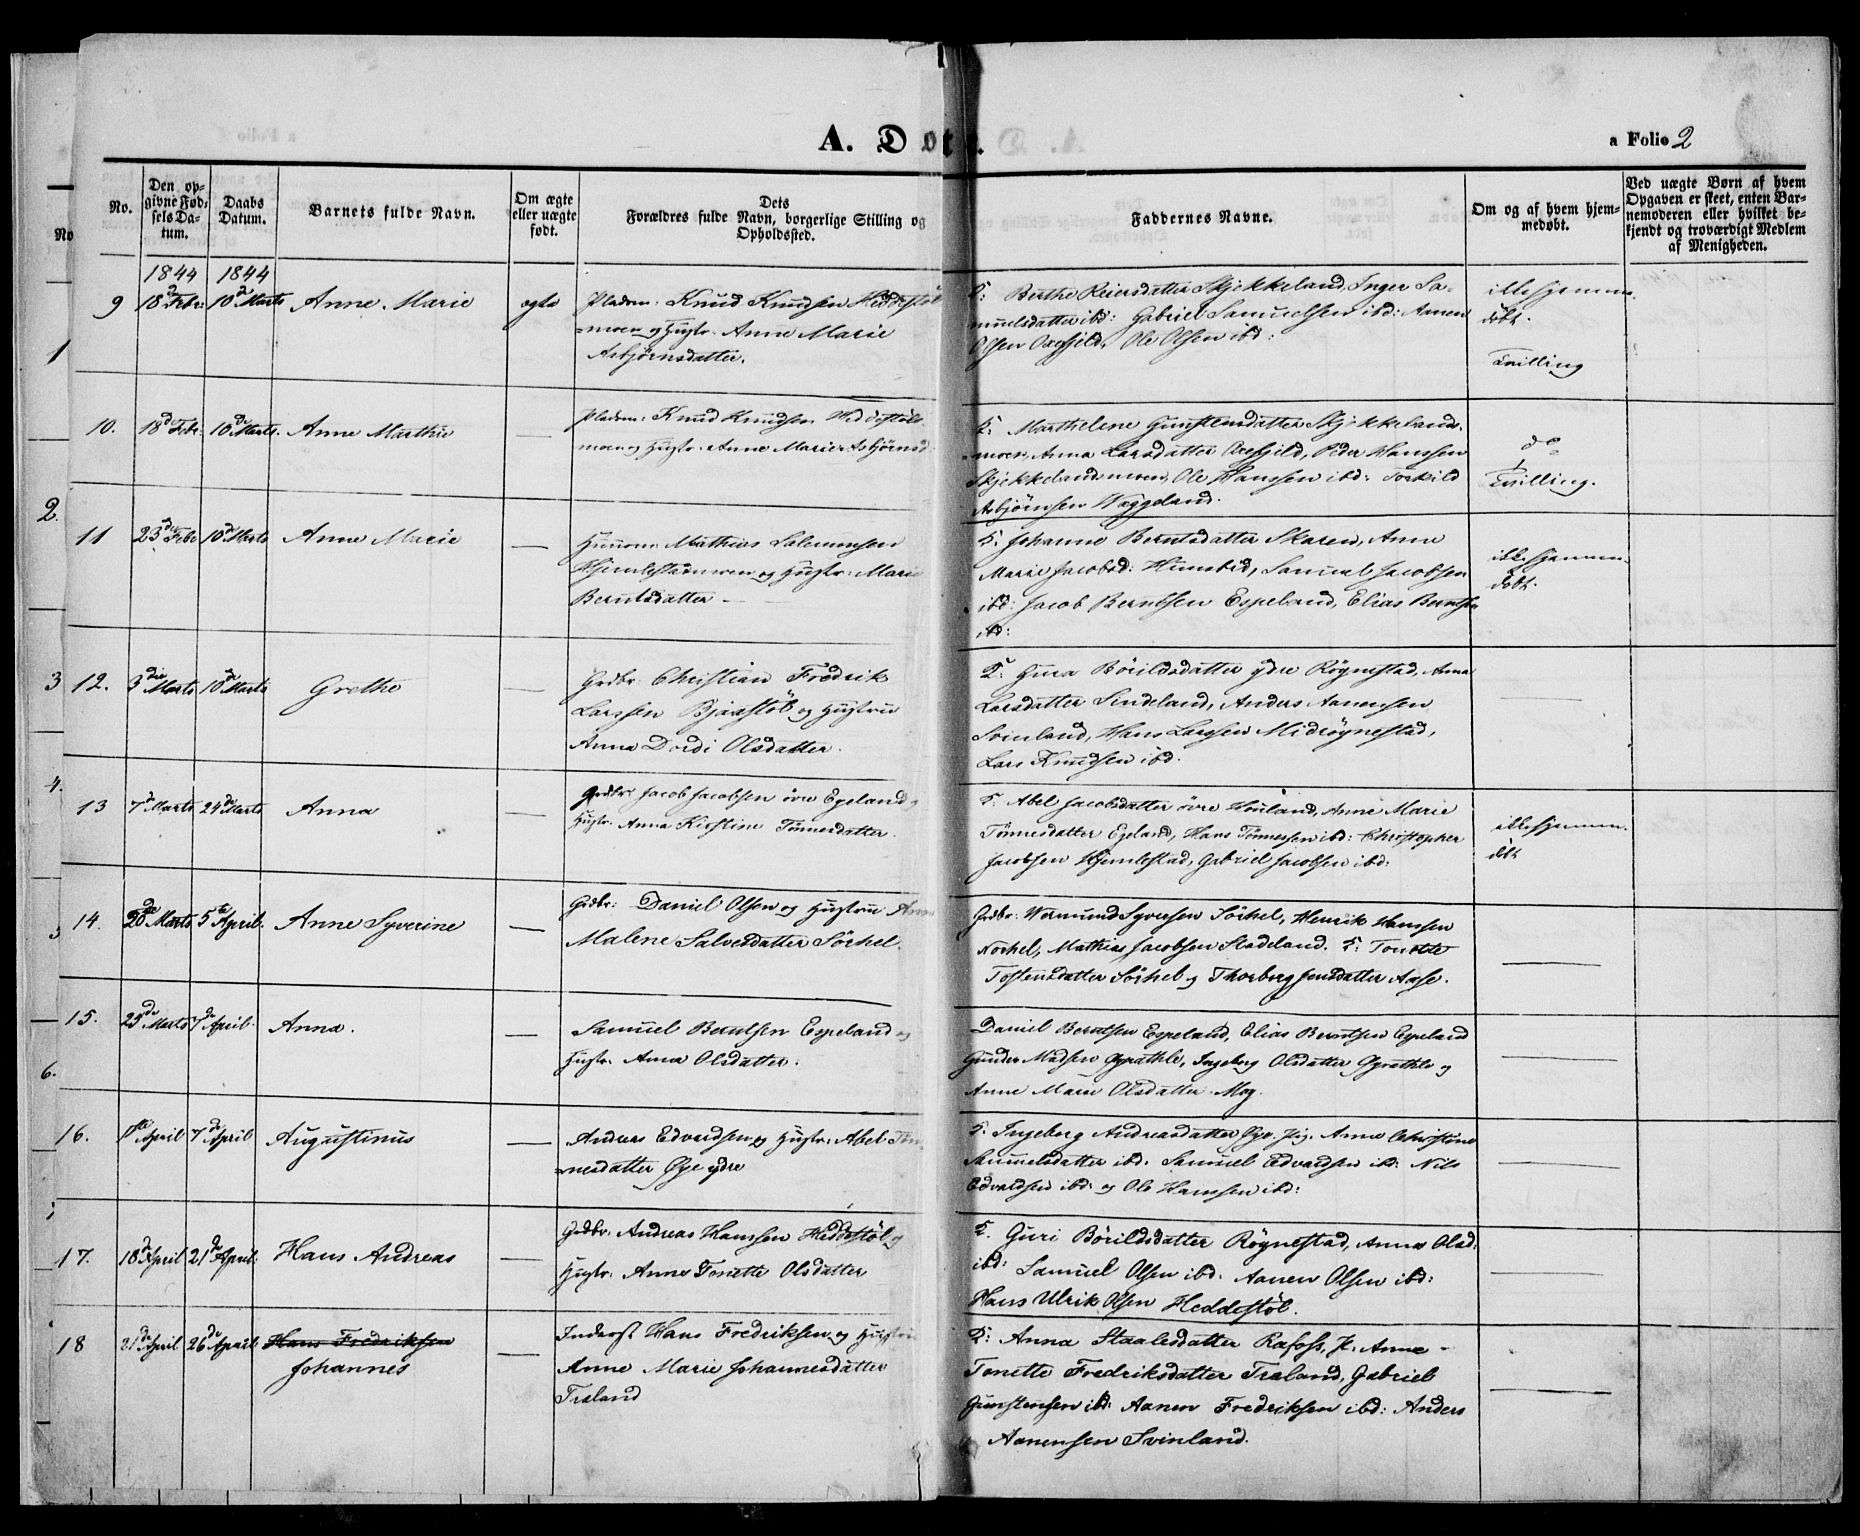 A. Døte.
a Folio 2
No.
Den op-
givne Fød-
sels Da-
tum.
Daabs
Datum.
Barnets fulde Navn.
Om ægte
eller uægte
født.
Dets
Forældres fulde Navn, borgerlige Stilling og
Opholdssted.
Faddernes Navne.
Om og af hvem hjem-
medøbt.
Ved uægte Børn af hvem
Opgaven er skeet, enten Bar-
nemoderen eller hvilket be-
kjendt og troværdigt Medlem
af Menigheden.
1844 1844
9 18d Febr: 10d Marts Anne Marie ægte
Pladsm: Knud Knudsen Heddestöl
=moen og Hustr. Anne Marie
Asbjørnsdatter.
F: Berthe Reiersdatter Skjekkeland, Inger Sa-
muelsdatter ibd: Gabriel Samuelsen ibd: Aanen
Olsen Oxefjeld, Ole Olsen ibd:
ikke hjemme
døbt.
Tvilling
10. 18d Febr: 10de Marts. Anne Marthie —
Pladsm: Knud Knudsen Heddestöl
moen og Hustr. Anne Marie Asbjørnsd
F: Marthelene Gunstensdatter Skjekkelands
=moen, Anna Larsdatter Oxefjeld, Peder Hanssen
Skjekkelandsmoen, Ole Hanssen ibd: Torkild
Asbjørnsen Wæggeland.
do
Tvilling.
11 23de Febr 10de Marts Anne Marie —
Huusm: Mathias Salemonsen
Hjemlestadmoen og Hustr: Marie
Berntsdatter —
F. Johanne Berntsdatter Skaren, Anne
Marie Jacobsd: Hunsbed, Samuel Jacobsen
ibd: Jacob Berntsen Espeland, Elias Berntsen
ibd:
ikke hjemme
døbt.
12. 3die Marts 10de Marts Grethe —
Grdbr: Christian Fredrik
Larssen Bjærstöl og Hustrue
Anna Dordi Olsdatter.
F: Gura Börildsdatter ydre Røgnestad, Anna
Larsdatter Sindeland, Anders Aanensen
Svinland, Hans Larssen Midrøgnestad,
Lars Knudsen ibd.
13 7de Marts 24de Marts Anna —
Grdbr: Jacob Jacobsen övre Egeland og
Hustr. Anna Kirstine Tönnesdatter.
F. Abel Jacobsdatter övre Houland, Anne Marie
Tönnesdatter Egeland, Hans Tönnessen ibd: Christopher
Jacobsen Hjemlestad, Gabriel Jacobsen ibd:
ikke hjemme
døbt
14. 20de Marts 5te April. Anne Syverine —
Grdbr: Daniel Olsen og Hustrue Anne
Malene Salvesdatter Sörhel.
Grdbr: Wermund Syversen Sörhel, Henrik Hanssen
Norhel, Mathias Jacobsen Stadeland. F: Tonette
Tostensdatter Sörhel og Thorborg Jensdatter Aase.
15. 25de Marts 7de April. Anna. —
Samuel Berntsen Espeland og
Hustr. Anna Olsdatter.
Daniel Berntsen Espeland, Elias Berntsen Espeland
Gunder Madsen Gyrathle, Ingeborg Olsdatter Gyrathle og
Anne Marie Olsdatter Moy.
16. 1ste April 7de April Augustinus —
Andreas Edvardsen og Hustr. Abel Tön
=nesdatter Øye ydre
F. Ingeborg Andreasdatter Øye. Pig. Anne Christine
Samuelsdatter ibd. Samuel Edvardsen ibd: Nils
Edvardsen ibd: og Ole Hanssen ibd:
17. 18de April 21de April. Hans Andreas —
Grdbr. Andreas Hanssen Heddestöl og
Hustr: Anne Tonette Olsdatter
F. Guri Börildsdatter Røgnestad, Anna Olsd:
ibd: Samuel Olsen ibd. Aanen Olsen ibd:
Hans Ulrik Olsen Heddestöl.
18 21de April 26de April. Hans Fredriksen
Johannes —
Inderst Hans Fredriksen og Hustrue
Anne Marie Johannesdatter
Træland
F: Anna Staalesdatter Rafoss, P. Anne
Tonette Fredriksdatter Træland, Gabriel
Gunstensen ibd: Aanen Fredriksen ibd: Anders
Aanensen Svinland.
No
1
2.
3
4.
5
6.